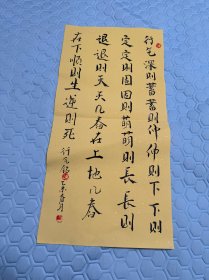 行气深则蓄蓄则伸伸则下下则
定定则固固则萌萌则長長则
退退则天天几春在上地几春
在下顺则生逆则死 行气铭